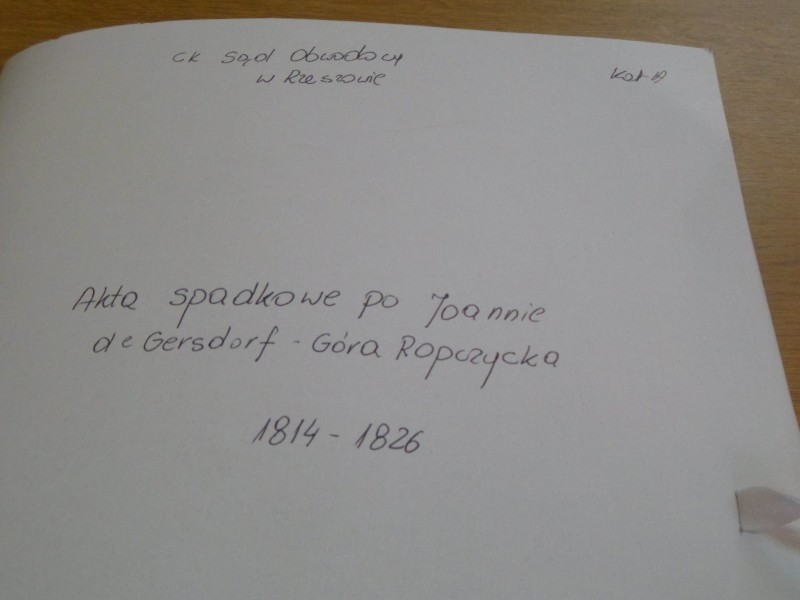 ck Sąd Obwodowy
w Rzeszowie
Kat A
Akta spadkowe po Joannie
de Gersdorf - Góra Ropczycka
1814 - 1826